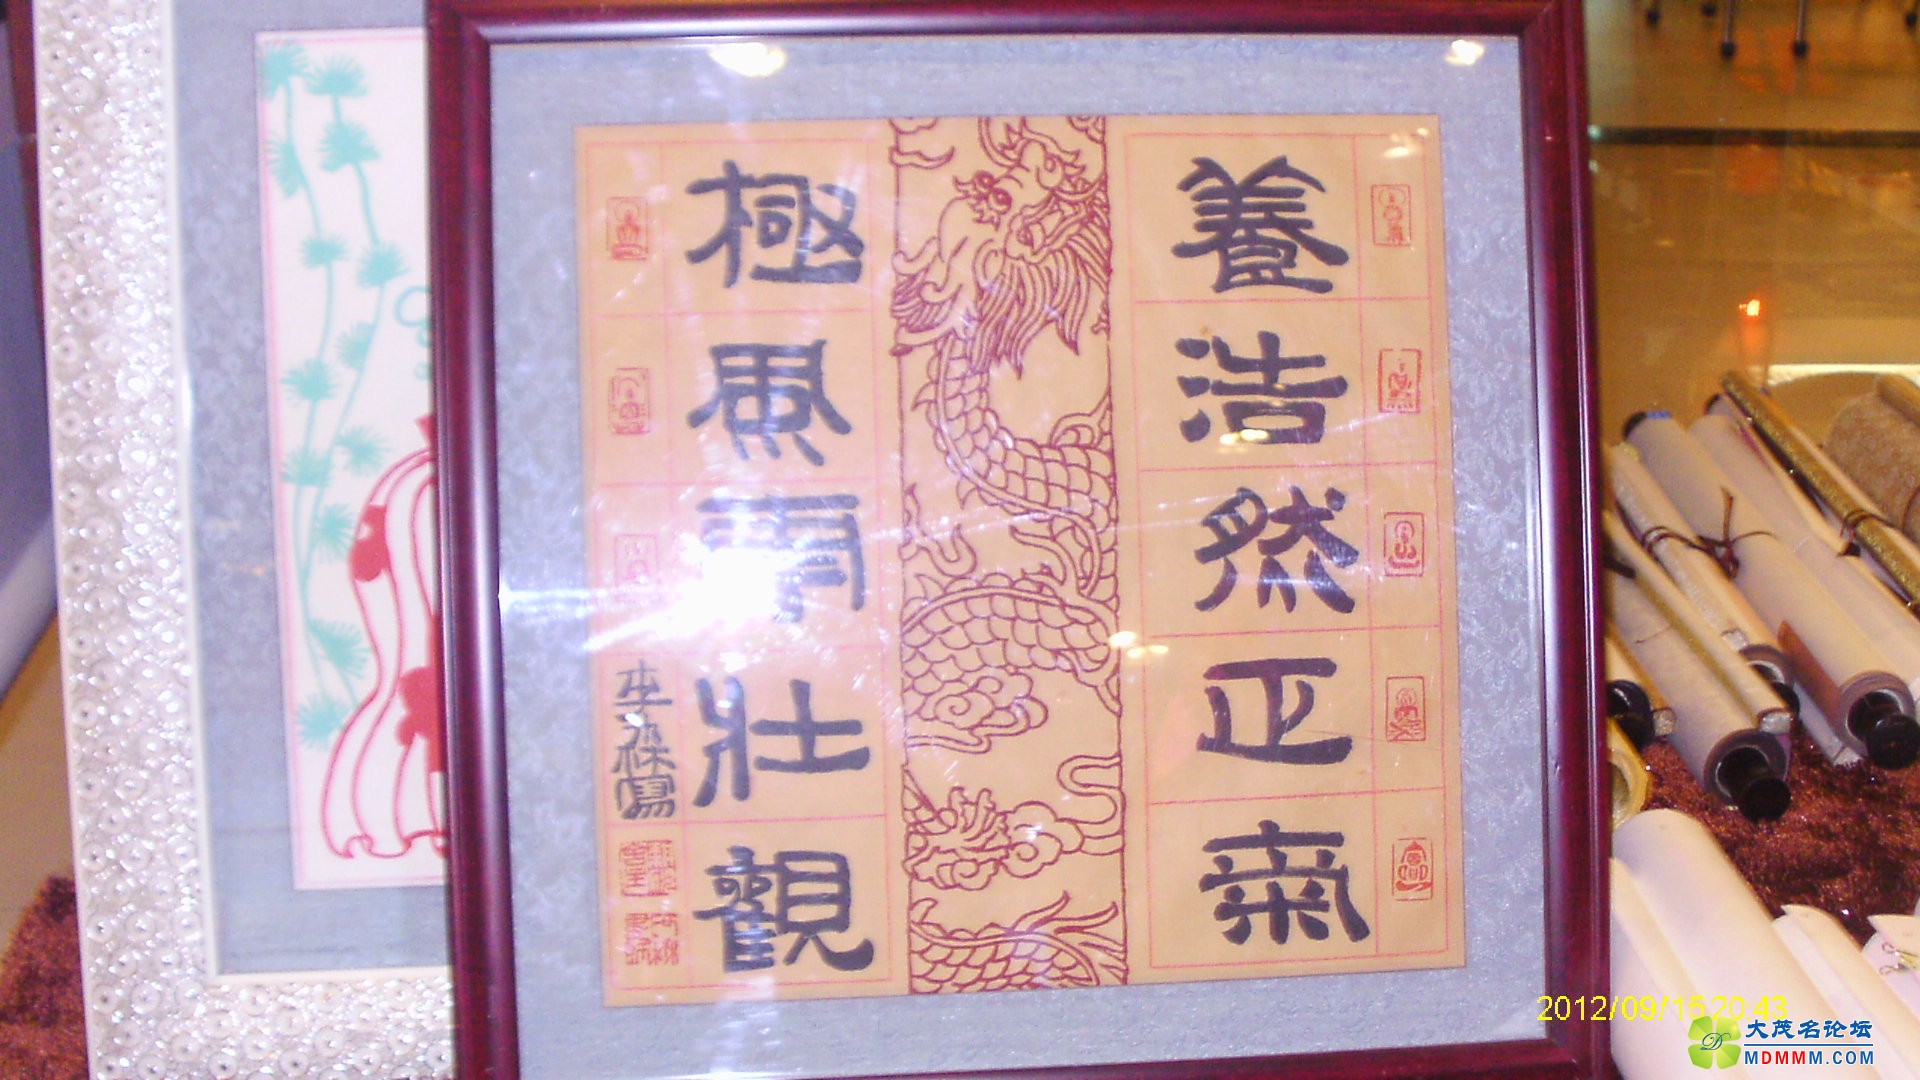 養浩然正氣
極風雨壯觀
2012/09/15 20:43
大茂名论坛
MDMMM.COM